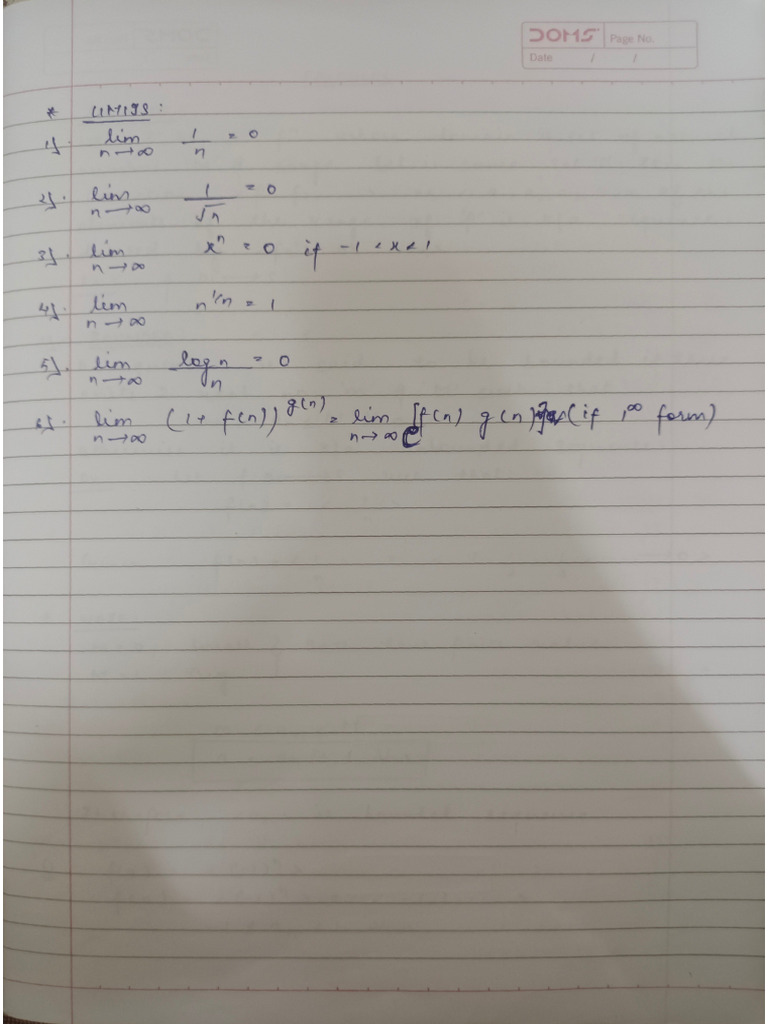 DOMS Page No.
Date / /
* LIMITS:
1). lim n→∞ 1/n = 0
2). lim n→∞ 1/√n = 0
3). lim n→∞ xⁿ = 0 if -1 < x < 1
4). lim n→∞ n^(1/n) = 1
5). lim n→∞ log n / n = 0
6). lim n→∞ (1 + f(n))^g(n) = lim n→∞ e[f(n) g(n)] (if 1^∞ form)